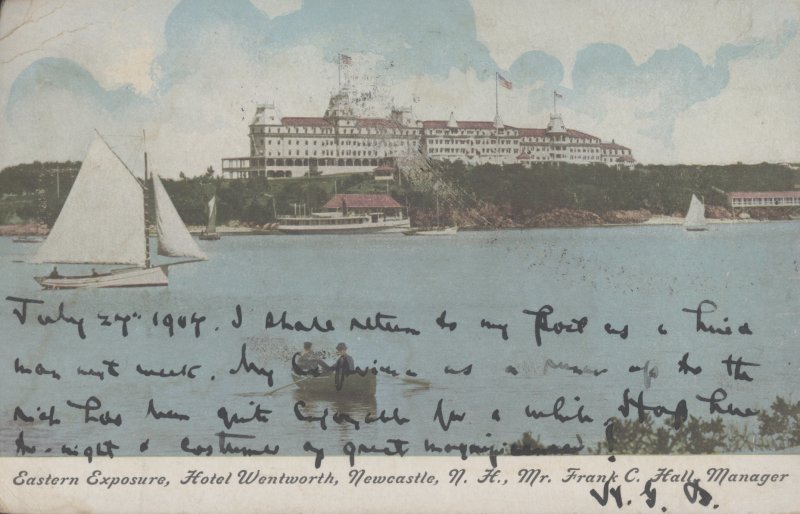 July 27th 1907. I shall return to my Post as a hired
man next week. My experience as a runner up to the
rich has been quite enjoyable for a while. Hop here
to-night & costumes of great magnificence!
H. G. B.
Eastern Exposure, Hotel Wentworth, Newcastle, N. H., Mr. Frank C. Hall, Manager